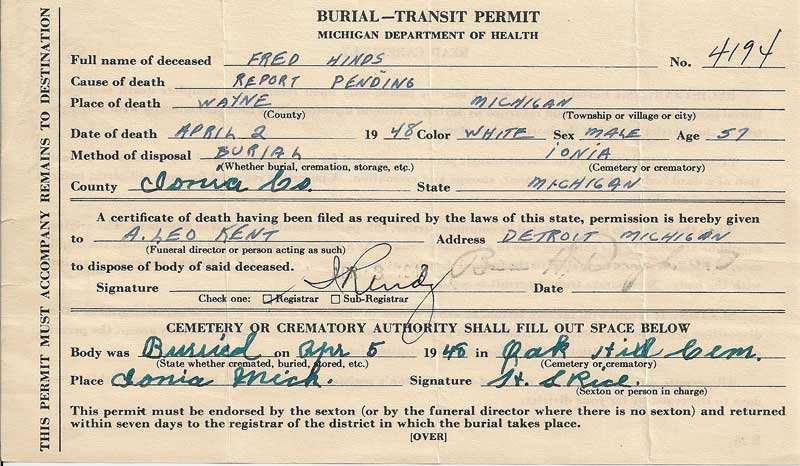 BURIAL—TRANSIT PERMIT
MICHIGAN DEPARTMENT OF HEALTH
Full name of deceased FRED HINDS No. 4194
Cause of death REPORT PENDING
Place of death WAYNE MICHIGAN
(County) (Township or village or city)
Date of death APRIL 2 1948 Color WHITE Sex MALE Age 57
Method of disposal BURIAL IONIA
(Whether burial, cremation, storage, etc.) (Cemetery or crematory)
County Ionia Co. State MICHIGAN
A certificate of death having been filed as required by the laws of this state, permission is hereby given
to A. LEO KENT Address DETROIT MICHIGAN
(Funeral director or person acting as such)
to dispose of body of said deceased.
Signature Date
Check one: Registrar Sub-Registrar
CEMETERY OR CREMATORY AUTHORITY SHALL FILL OUT SPACE BELOW
Body was Burried on Apr 5 1948 in Oak Hill Cem.
(State whether cremated, buried, stored, etc.) (Cemetery or crematory)
Place Ionia Mich. Signature
(Sexton or person in charge)
This permit must be endorsed by the sexton (or by the funeral director where there is no sexton) and returned
within seven days to the registrar of the district in which the burial takes place.
[OVER]
THIS PERMIT MUST ACCOMPANY REMAINS TO DESTINATION